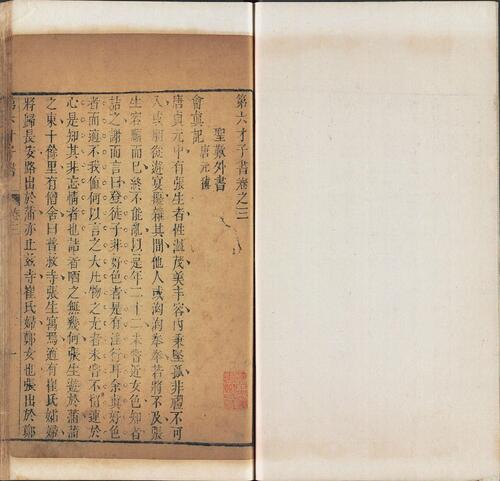 第六才子書卷之三
聖歎外書
會真記 唐元稹
唐貞元中有張生者性溫茂美丰容內秉堅孤非禮不可
入或朋從遊宴擾雜其間他人或洶洶拳拳若將不及張
生容順而已終不能亂以是年二十二未嘗近女色知者
詰之謝而言曰登徒子非好色者是有淫行耳余真好色
者而適不我值何以言之大凡物之尤者未嘗不留連於
心是知其非忘情者也詰者哂之無幾何張生遊於蒲蒲
之東十餘里有僧舍曰普救寺張生寓焉適有崔氏孀婦
將歸長安路出於蒲亦止茲寺崔氏婦鄭女也張出於鄭
第六才子書 卷三 一